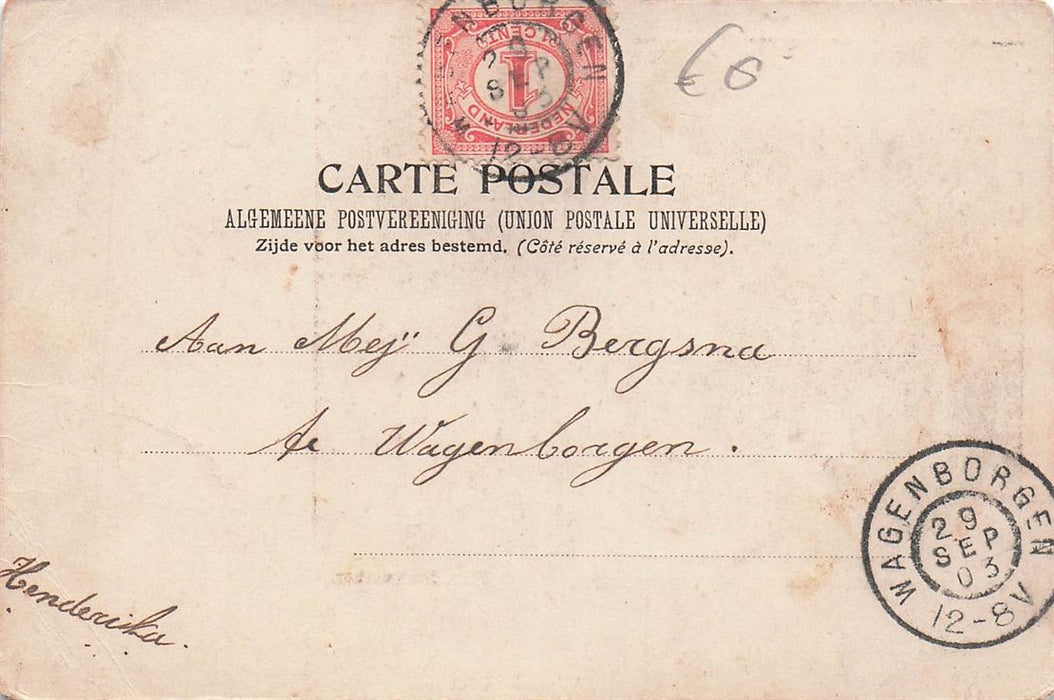 NBORGEN
29
SEP
03
12-8V
1 CENT
1 CENT
1
NEDERLAND
€6
CARTE POSTALE
ALGEMEENE POSTVEREENIGING (UNION POSTALE UNIVERSELLE)
Zijde voor het adres bestemd. (Côté réservé à l'adresse).
Aan Mejÿ G Bergsma
te Wagenborgen.
WAGENBORGEN
29
SEP
03
12-8V
Henderika.